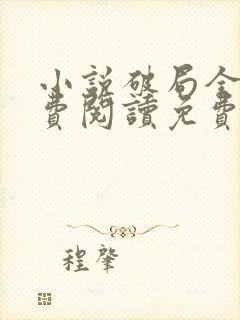 小説破局全
費閱讀免費
程肇